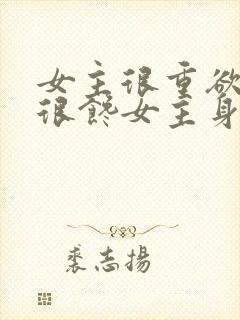 女主很重欲
很馋女主身
裘志揚